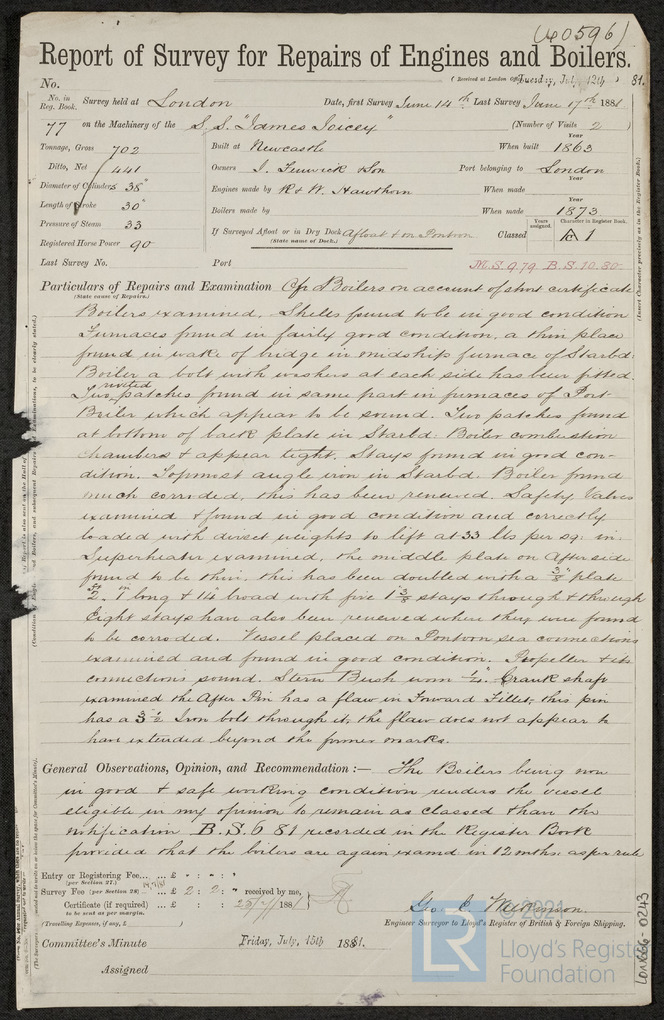 (40596)
Report of Survey for Repairs of Engines and Boilers.
No. (Received at London Office Tuesday, July 12th 81.
No. in Reg. Book. Survey held at London Date, first Survey June 14th Last Survey June 17th 1881
77 on the Machinery of the S.S. "James Joicey" (Number of Visits 2)
Tonnage, Gross 702 Built at Newcastle When built Year 1863
Ditto, Net 441 Owners J. Fenwick & Son Port belonging to London
Diameter of Cylinders 38" Engines made by R & W. Hawthorn When made Year
Length of Stroke 30" Boilers made by When made Year 1873
Pressure of Steam 33 If Surveyed Afloat or in Dry Dock Afloat & on Pontoon Classed Years assigned. Character in Register Book. 1
(State name of Dock.)
Registered Horse Power 90
Last Survey No. Port M.S. 9.79. B.S. 10.80.
Particulars of Repairs and Examination Boilers on account of short certificate
(State cause of Repairs.)
Boilers examined. Shells found to be in good condition
Furnaces found in fairly good condition, a thin place
found in wake of bridge in midship furnace of Starbd:
Boiler a bolt with washers at each side has been fitted.
Two riveted patches found in same part in furnaces of Port
Boiler which appear to be sound. Two patches found
at bottom of back plate in Starbd: Boiler combustion
chambers & appear tight. Stays found in good con-
dition. Topmost angle iron in Starbd: Boiler found
much corroded, this has been renewed. Safety Valves
examined & found in good condition and correctly
loaded with direct weights to lift at 33 lbs per sq: in.
Superheater examined, the middle plate on After side
found to be thin, this has been doubled with a 3/8" plate
long & broad with five 1 3/8 stays through & through
Eight stays have also been renewed where they were found
to be corroded. Vessel placed on Pontoon sea connections
examined and found in good condition. Propeller & its
connections sound. Stern Bush worn 1/4". Crank shaft
examined the After Pin has a flaw in Forward Fillet, this pin
has a 3 1/2 Iron bolt through it, the flaw does not appear to
have extended beyond the former marks.
General Observations, Opinion, and Recommendation:— The Boilers being now
in good & safe working condition renders the vessel
eligible in my opinion to remain as classed & have the
notification B.S. 6 81 recorded in the Register Book
provided that the boilers are again examd in 12 mths. as per rule
Entry or Registering Fee... £ : :
(per Section 27.)
Survey Fee (per Section 28) ... £ 2 : 2 : " received by me,
Certificate (if required) ... £ : : 1881
to be sent as per margin.
(Travelling Expenses, if any, £ )
Geo C
Engineer Surveyor to Lloyd's Register of British & Foreign Shipping.
Committee's Minute Friday, July, 15th 1881.
Assigned
© 2021
LR
Lloyd's Register
Foundation
(Insert Character precisely as in the Register Book.)